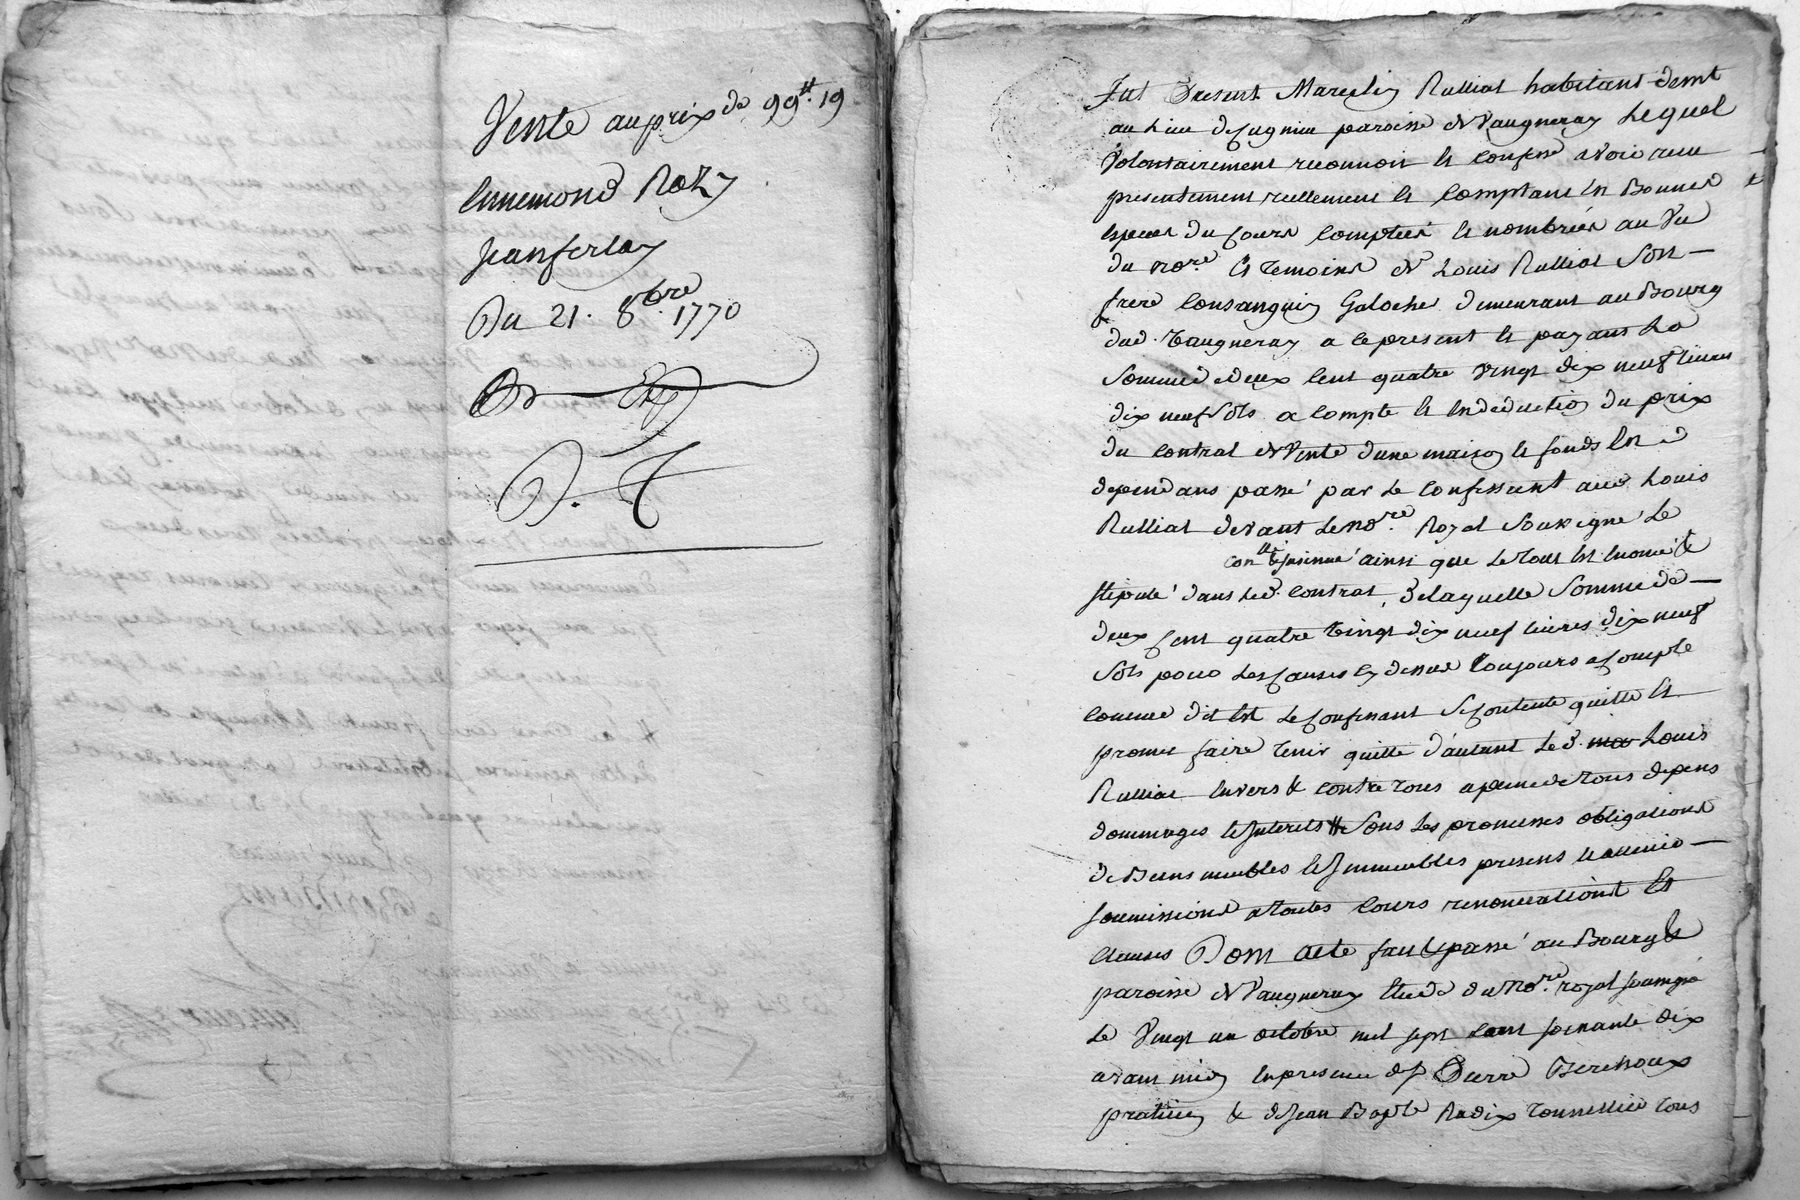 Vente au prix de 99ᵗᵗ. 19
Ennemond Rozy
Jean ferlay
Du 21. 8bre. 1770
Fut Present Marcelin Rulliat habitant demt
au Lieu de paroisse de Vaugneray Lequel
Volontairement reconnoit et confesse avoir recu
presentement reellement et Comptant En Bonnes
Especes du Cours Comptées et nombrées au Vu
du nore. Et temoins de Louis Rulliat Son
frere Consanguin Galoché demeurant au Bourg
dud. Vaugneray a ce present et payant La
Somme de deux Cent quatre Vingt dix neuf Livres
dix neuf Sols a Compte et En deduction du prix
du Contrat de Vente d'une maison et fonds En
dependans passé par Le Confessant aud Louis
Rulliat devant Le nore. Royal Soussigné Le
insinué ainsi que Le tout Est Enoncé &
stipulé dans Led. Contrat, de laquelle Somme de
deux Cent quatre Vingt dix neuf Livres dix neuf
Sols pour Les Causes Cy dessus toujours a Compte
Comme dit Est Le Confessant Se Contente quitte Et
promet faire tenir quitte d'autant Led. Louis
Rulliat Envers & Contre tous a peine de tous depens
dommages et Interets # Sous Les promesses obligations
de Biens meubles et Immeubles presens et avenir
soumissions a toutes Cours renonciations Et
clauses Dont acte fait & passé au Bourg &
paroisse de Vaugneray Etude du Nore. royal soussigné
Le Vingt un octobre mil sept Cent soixante dix
avant midy En presence de Sr Pierre Berchoux
praticien & de Jean Bapte Radix tonnellier tous